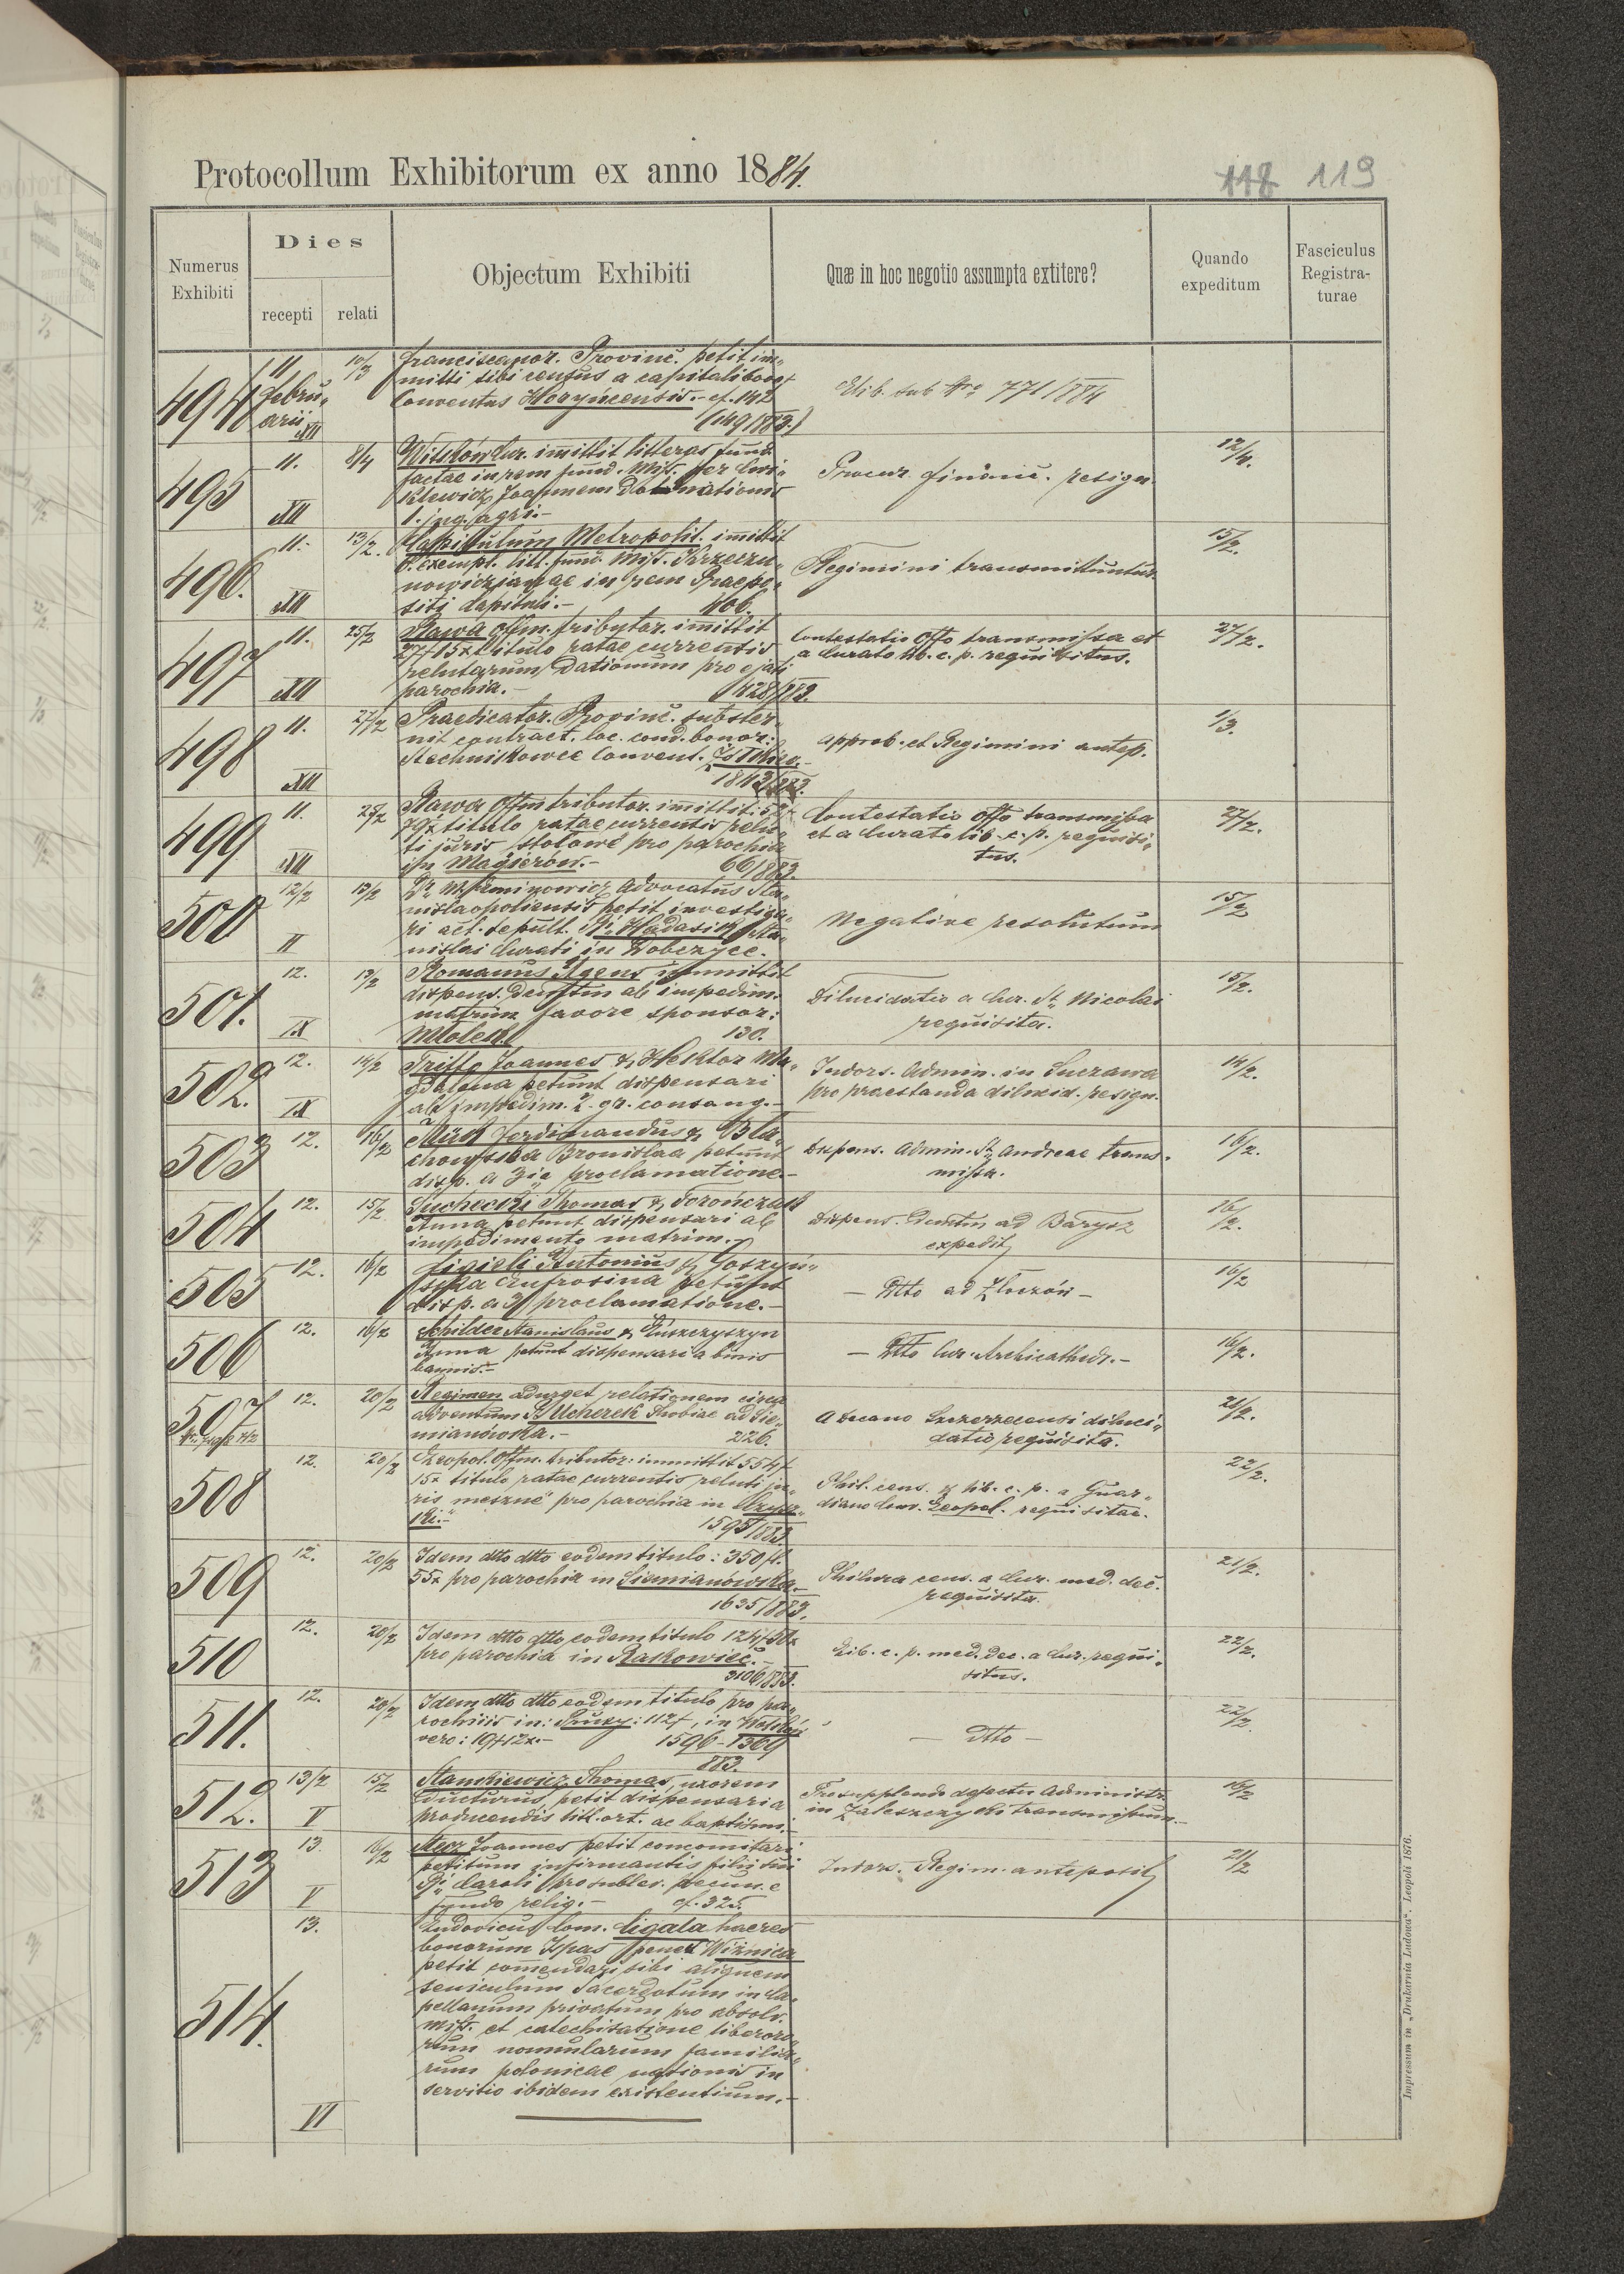 Protocollum Exhibitorum ex anno 1884.
118 119
Numerus Exhibiti
Dies
recepti
relati
Objectum Exhibiti
Quæ in hoc negotio assumpta extitere?
Quando expeditum
Fasciculus Registra-
turae
494
11 februarii
XII
10/3
Franciscanor. Provinc. petit im„
mitti sibi census a capitali
Conventus Horyńcensis.- cf. 142
(149/883.)
Exib. sub Nro 771/884
495
11.
XII
8/4
Witków Cur. immittit litteras fund.
factae in rem fund. Miss. per
Joannem
1. jug. agri.-
Procur. financ. resign.
12/4.
496.
11.
XII
13/2.
Capitulum Metropolit. immittit
exempl. litt. fund. Miss. Krzeczu„
nowiczianae in rem Praepo„
siti Capituli.- 406.
Regimini transmittuntur.
15/2.
497
11.
XII
25/2
Rawa offm. tributar. immittit
27 f 15x titulo ratae currentis
relutarum dationum pro ejati
parochia.- 1428/883.
Contestatio offo transmissa et
a Curato lib. c. p. requisitus.
27/2.
498
11.
XII
27/2
Praedicator. Provinc. subster„
nit contract. loc. cond. bonor:
Stechnikowce Convent.
1843/883.
approb. et Regimini antep.
1/3.
499
11.
XII
25/2
Rawa Offm tributar. immittit:
79x titulo ratae currentis relu„
ti juris stołowe pro parochia
in Magierów.- 66/883.
Contestatio offo transmissa
et a Curato lib. c. p. requisi„
tus.
27/2.
500
12/2
II
13/2
Advocatus Sta„
nislaopoliensis petit investiga„
ri act. sepult. Hadasik Sta„
nislai Curati in
Negative resolutum
15/2
501.
12.
IX
13/2
Romanus Agens immittit
dispens. ab impedim.
matrim favore sponsor:
Młolek 130.
Dilucidatio a Cur. St. Nicolai
requisita.
15/2.
502.
12.
IX
14/2
Tritto Joannes & Hektor Ma„
gdalena petunt dispensari
ab impedim. 2. gr. consang.-
Indors. Admin. in Suczawa
pro praestanda dilucid. resign.
14/2.
503
12.
16/2
Mück Ferdinandus & Bla„
chowska Bronislaa petunt
disp. a 3ia proclamatione.-
Dispens. Admin. St. Andreae trans.
missa.
16/2.
504
12.
15/2
Suchecki Thomas & Torończak
Anna petunt dispensari ab
impedimento matrim.
Dispens. ad Barysz
expedit
16/2.
505
12.
16/2
Figieli Antonius & Goszyń„
ska Eufrosina petunt
disp. a 3 proclamatione.-
— Dtto ad Złoczów —
16/2
506
12.
16/2
Schilder Stanislaus &
Anna petunt dispensari a binis
bannis.-
— Dtto Cur. Archicathedr. -
16/2.
507
12.
20/2
Regimen adurget relationem circa
adventum Ucherek Thobiae ad Sie„
mianówka.- 226.
A Decano Szczerzecensi diluci„
datio requisita.
21/2.
508
12.
20/2
Leopol. Offm. tributor: immittit 554 f
15x titulo ratae currentis reluti ju„
ris meszne pro parochia in
1595/883.
Phil. cens. & lib. c. p. a Guar„
diano Leopol. requisitae.
22/2.
509
12.
20/2
Idem dtto dtto eodem titulo: 350 fl.
55x pro parochia in Siemianówka.-
1635/883.
Philura cens. a Cur. med. dec.
requisita.
21/2.
510
12.
20/2
Idem dtto dtto eodem titulo 124 f 50x
pro parochia in Rakowiec.-
2106/883.
Lib. c. p. med. dec. a Cur. requi„
situs.
22/2.
511.
12.
20/2
Idem dtto dtto eodem titulo pro pa„
rochiis in: Prusy: 112 f, in
vero: 19 f 12x.- 1596-1369
883.
— dtto —
22/2.
512.
13/2
V
15/2
Stankiewicz Thomas, uxorem
ducturus, petit dispensari a
producendis litt. ort. ac baptism.-
Pro supplendo defectu Administr.
in Zaleszczyki transmissum.-
16/2
513
13
V
16/2
Mecz Joannes petit concomitari
petitum infirmantis filii sui
Caroli pro subles. pecun. e
fundo relig.- cf. 325.
Indors. Regim. anteposit
21/2
514.
13.
VI
Ludovicus Com. Cigala haeres
bonorum Ispas penes Wiżnica
petit comendari sibi aliquem
seniculum Sacerdotum in Ca„
pellanum privatum pro absolv.
miss. et catechisatione liberoro„
rum nonnularum familia„
rum polonicae nationis in
servitio ibidem existentium.-
Impressum in „Drukarnia Ludowa“. Leopoli 1876.